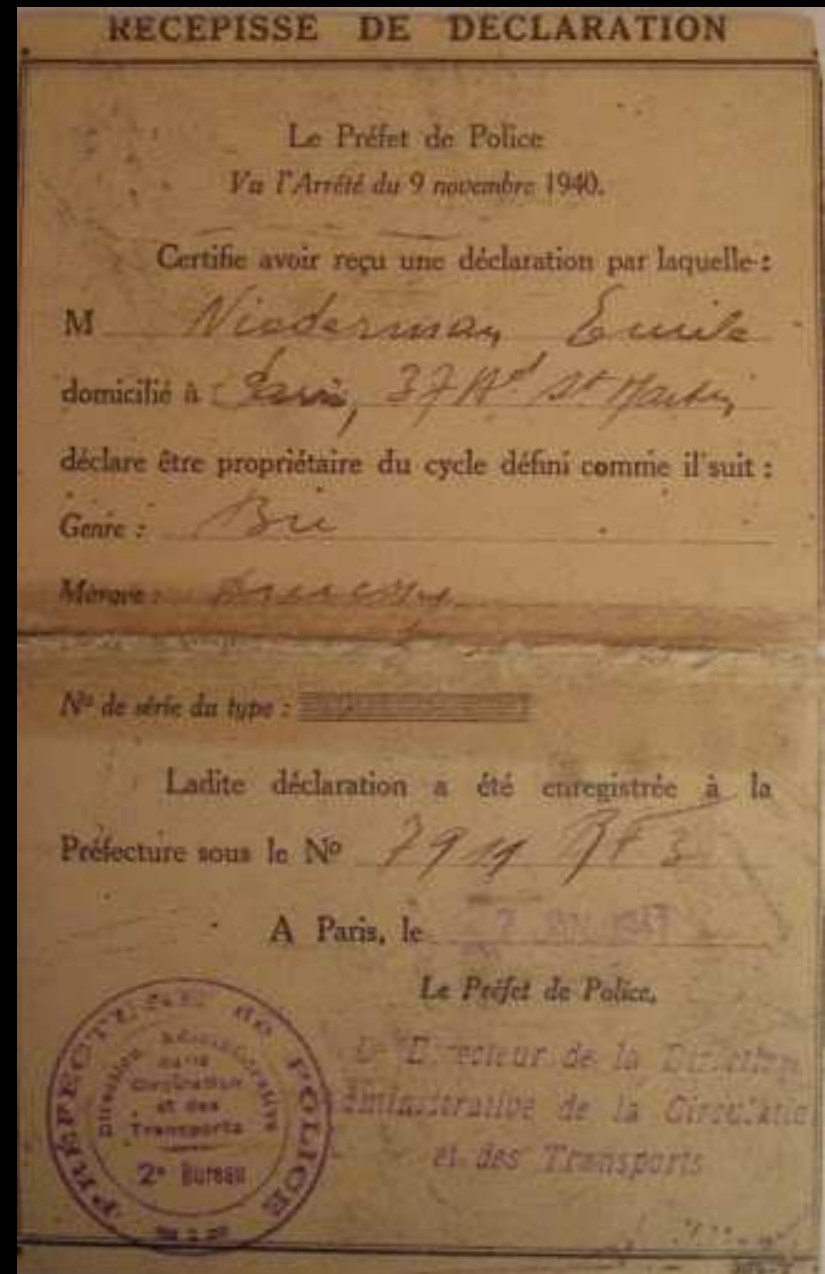 RECEPISSE DE DECLARATION
Le Préfet de Police
Vu l'Arrêté du 9 novembre 1940.
Certifie avoir reçu une déclaration par laquelle :
M Niederman Emile
domicilié à Paris, 37 Bd St Martin
déclare être propriétaire du cycle défini comme il suit :
Genre : Bic
Marque :
Nº de série du type :
Ladite déclaration a été enregistrée à la
Préfecture sous le Nº 7911 RF3
A Paris, le
Le Préfet de Police,
Le Directeur de la Direction
Administrative de la Circulation
et des Transports
PREFECTURE de POLICE
Direction Administrative
de la Circulation
et des
Transports
2e Bureau